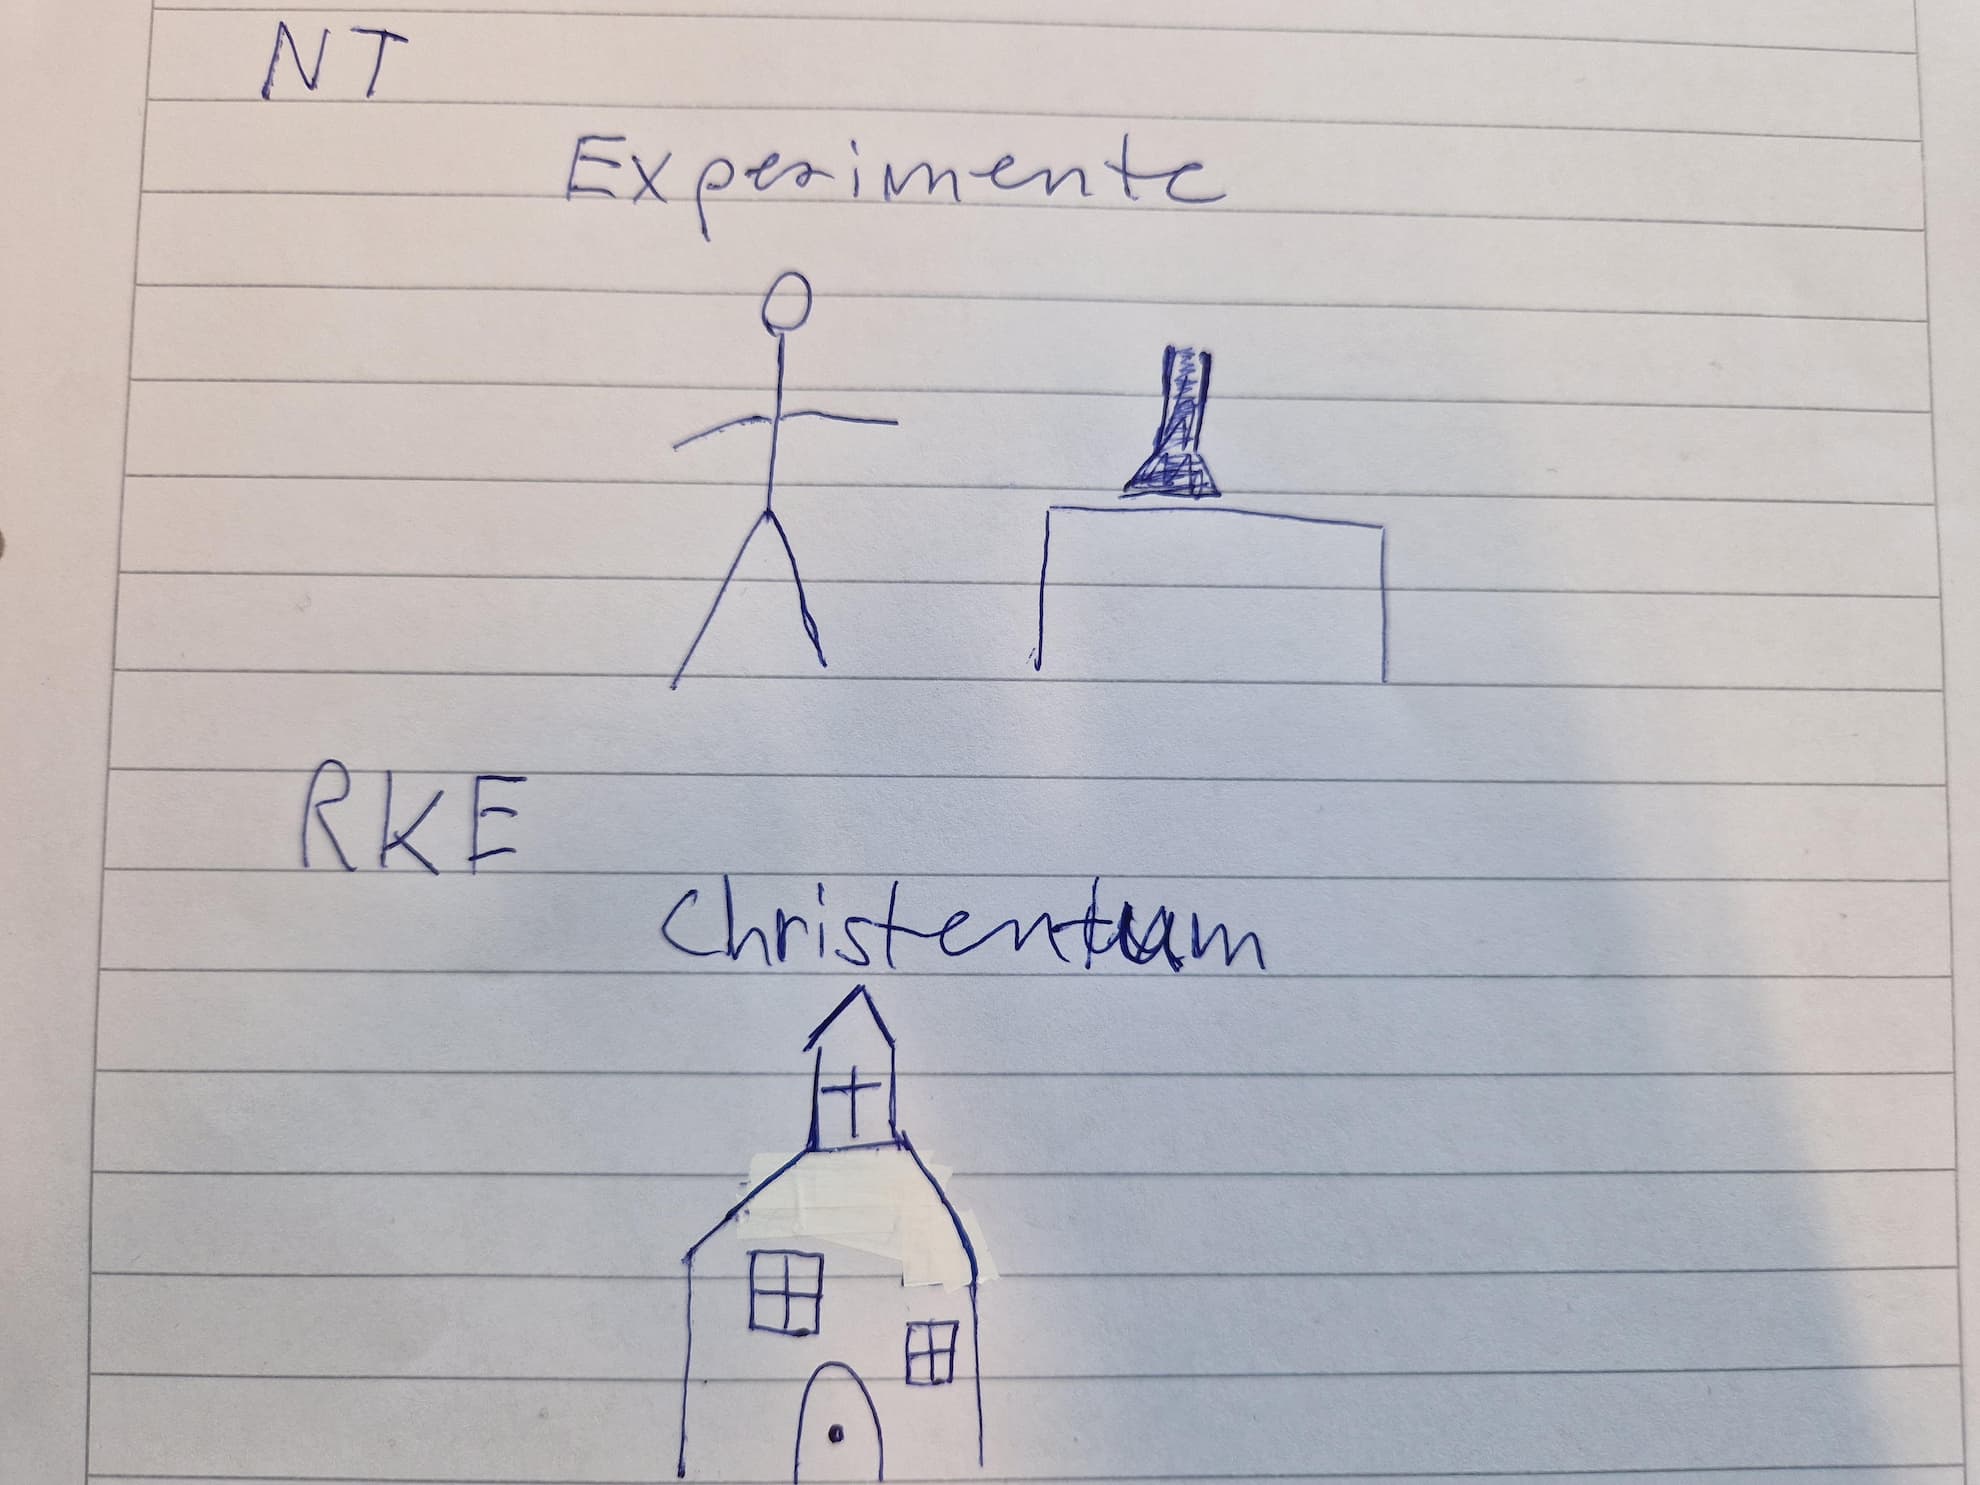 NT
Experimente
RKE
Christentum